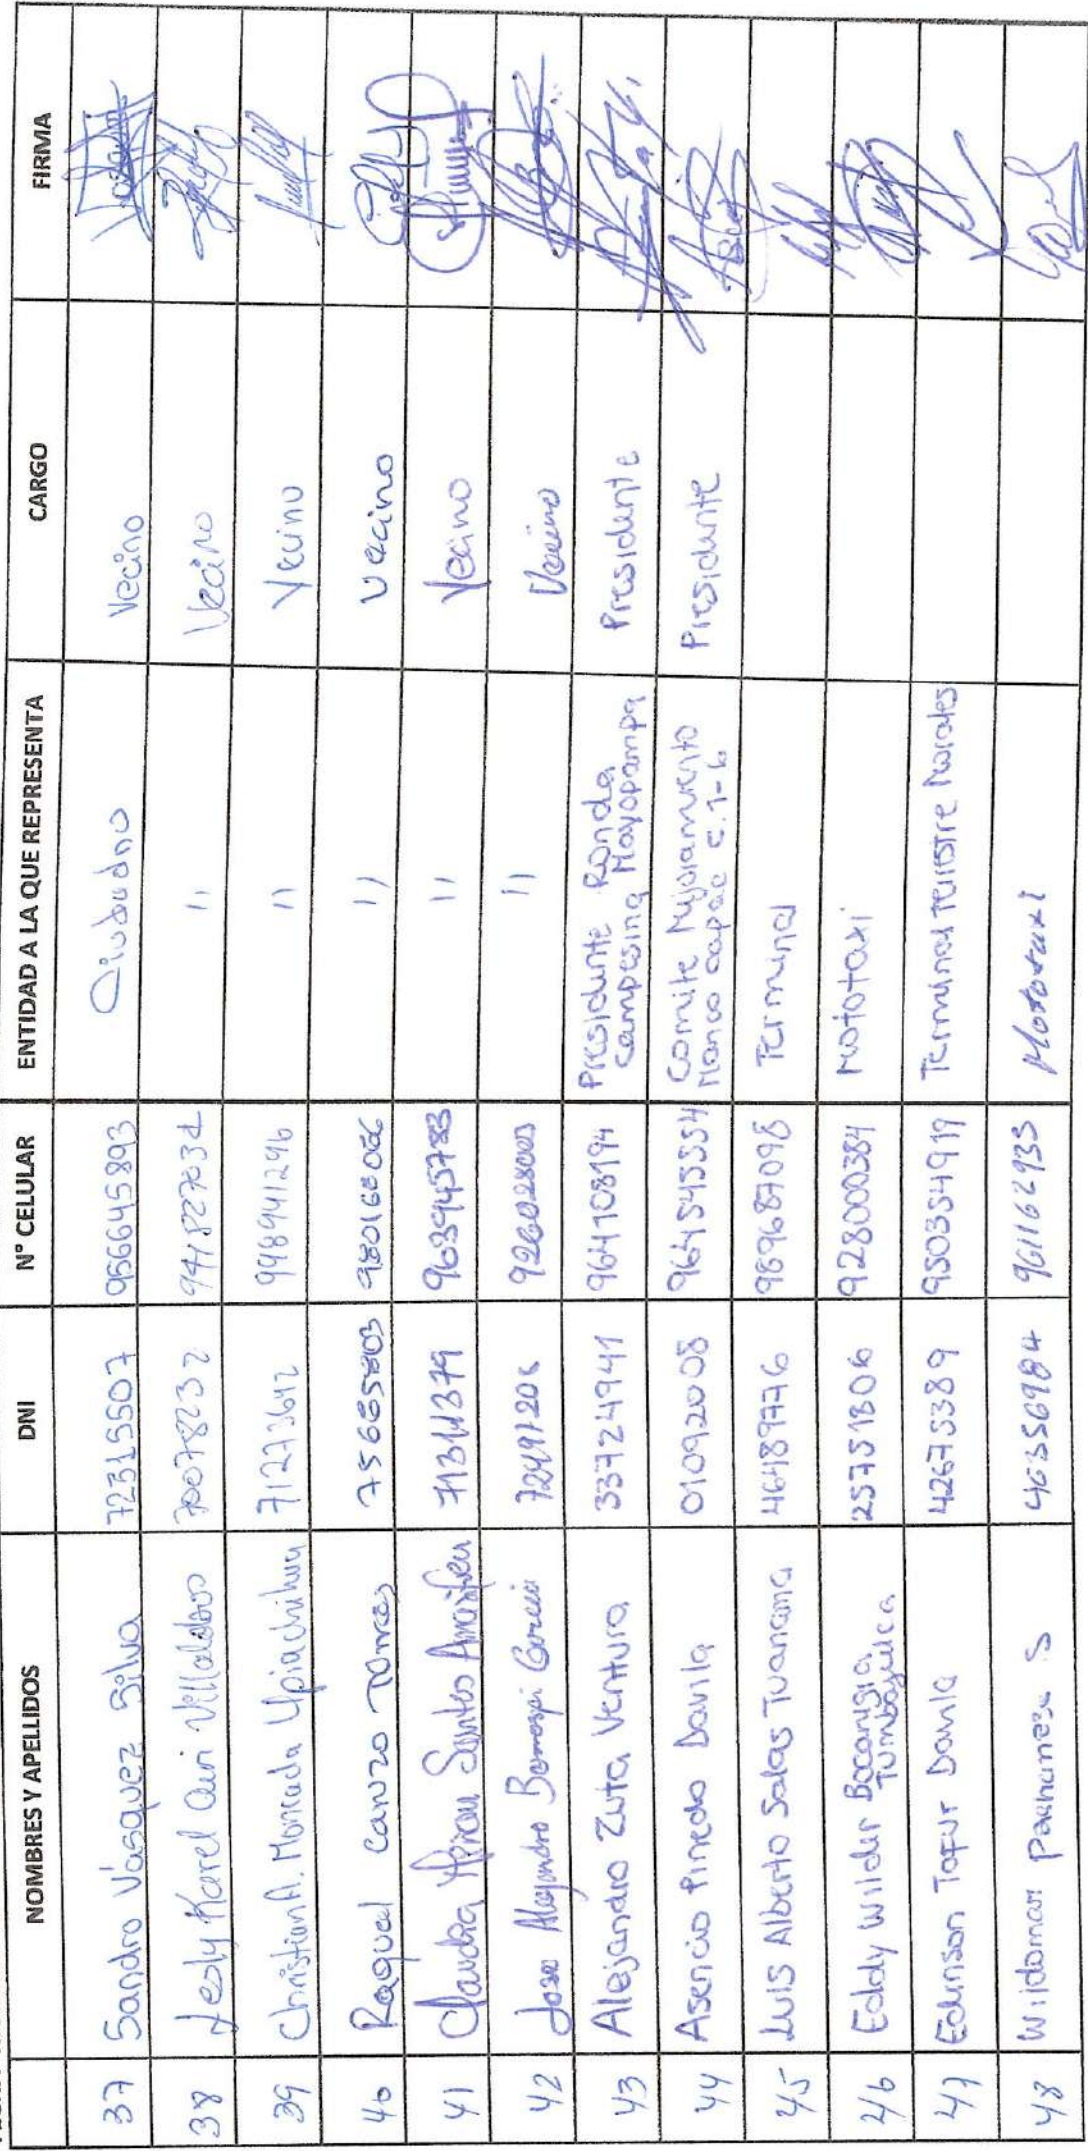 NOMBRES Y APELLIDOS DNI N° CELULAR ENTIDAD A LA QUE REPRESENTA CARGO FIRMA
37 Sandro Vásquez Silva 72315507 956645893 Ciudadno Vecino
38 Lesly Karel Ciuri Villalobos 70078232 944827032 " Vecino
39 Christian A. Moncada Upiachihua 71273642 998941296 " Vecino
40 Raquel Canzo Torres 75665803 980168066 " Vecino
41 Claudia Santos 71314379 963945783 " Vecino
42 Jose Alejandro Garcia 72491206 926028003 " Vecino
43 Alejandro Zuta Ventura 33724941 964108194 Presidente Ronda Campesina Mayopampa Presidente
44 Asencio Pinedo Davila 01092008 964545554 Comite Mejoramiento Manco capac c.1-6 Presidente
45 Luis Alberto Salas Tuanama 46489776 989687098 Terminal
46 Eddy Wilder Bocanigra Tumbajulca 25751806 928000384 Mototaxi
47 Edinson Tafur Davila 42675389 950354919 Terminal terrestre Morales
48 Wildomar S 46356984 961162933 Mototaxi